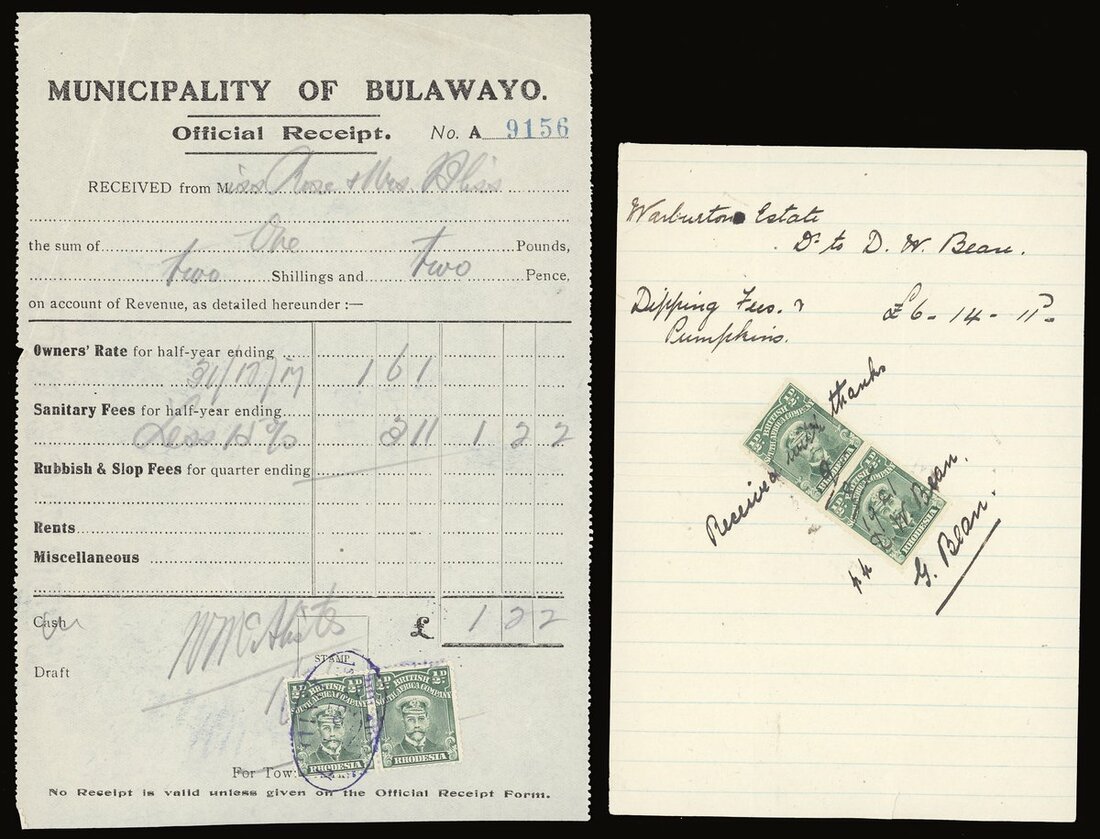 MUNICIPALITY OF BULAWAYO.
Official Receipt. No. A 9156
RECEIVED from Miss Rose & Mrs
the sum of One Pounds,
two Shillings and two Pence,
on account of Revenue, as detailed hereunder :—
Owners' Rate for half-year ending
31/12/17 1 6 1
Sanitary Fees for half-year ending
Less 15% 3 11 1 2 2
Rubbish & Slop Fees for quarter ending
Rents
Miscellaneous
Cash £ 1 2 2
STAMP
Draft
½D BRITISH ½D
SOUTH AFRICA COMPANY
RHODESIA
½D BRITISH ½D
SOUTH AFRICA COMPANY
RHODESIA
For Town
No Receipt is valid unless given on the Official Receipt Form.
Warburton Estate
Dr to D. W. Bean.
Dipping Fees. &
Pumpkins. £6 - 14 - 11
½D BRITISH ½D
SOUTH AFRICA COMPANY
RHODESIA
½D BRITISH ½D
SOUTH AFRICA COMPANY
RHODESIA
Received with thanks
W. Bean.
G. Bean.